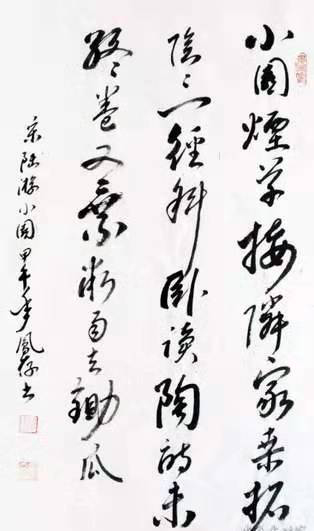 小園煙草接隣家桑柘
陰々一徑斜卧讀陶詩未
終卷又乘微雨去鋤瓜
宋陸游小園甲午年鳳存书